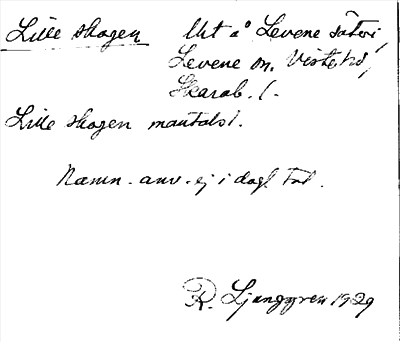 Lille skogen Utå Levene säteri,
Levene sn, Viste hd,
Skarab. l.
Lille skogen mantalsl.
Namn. anv. ej i dagl. tal.
R. Ljunggren 1929